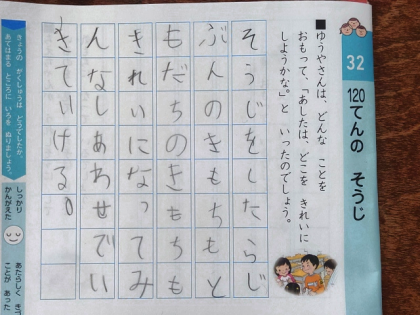 32
120てんの そうじ
■ゆうやさんは、どんな ことを
おもって、「あしたは、どこを きれいに
しようかな。」と いったのでしょう。
そうじをしたらじ
ぶんのきもちもと
もだちのきもちも
きれいになってみ
んなしあわせでい
きていける。
きょうの がくしゅうは どうでしたか。
あてはまる ところに いろを ぬりましょう。
しっかり
かんがえた
あたらしく
ことが あった